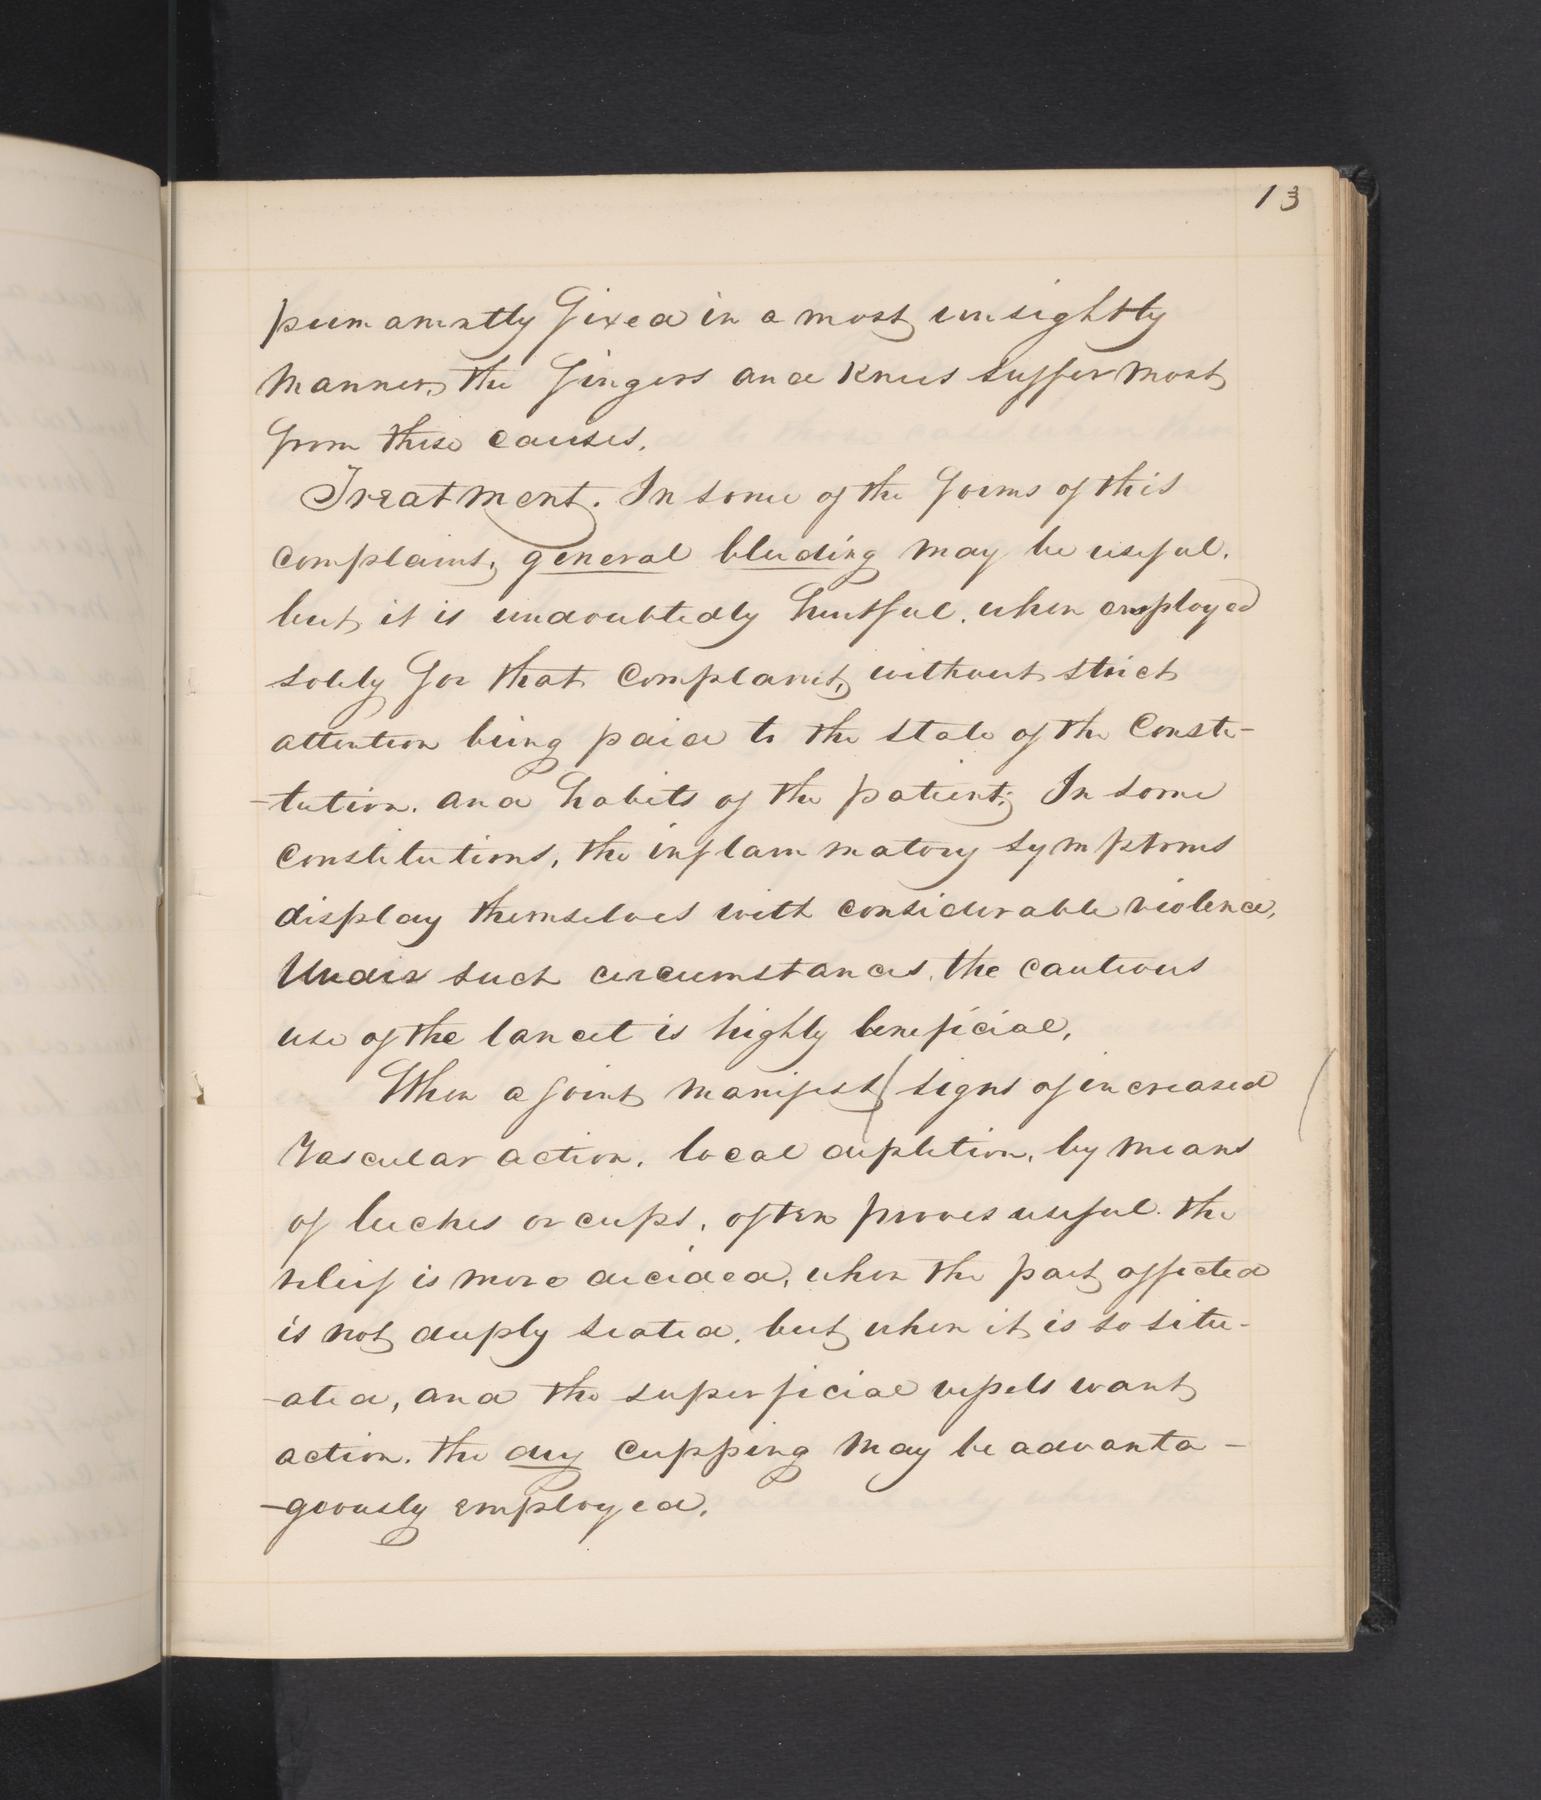 13
permanently fixed in a most unsightly
manner, the fingers and knees suffer most
from these causes.
Treatment. In some of the forms of this
complaint, general bleeding may be useful,
but it is undoubtedly hurtful, when employed
solely for that complaint, without strict
attention being paid to the state of the Consti-
-tution, and habits of the patient; In some
constitutions, the inflammatory symptoms
display themselves with considerable violence,
Under such circumstances, the cautious
use of the lancet is highly beneficial,
When a joint manifest signs of increased
vascular action, local depletion, by means
of leeches or cups, often proves useful. the
relief is more decided, when the part affected
is not deeply seated, but when it is so situ-
-ated, and the superficial vessels want
action, the dry cupping may be advanta-
-geously employed.